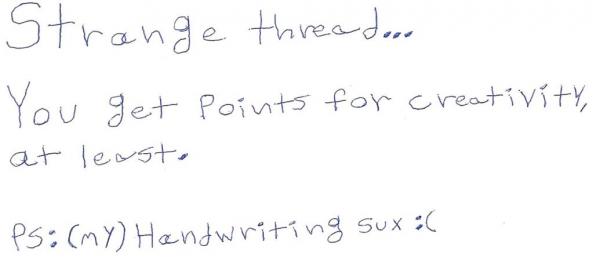 Strange thread...
You get Points for creativity,
at least.
PS: (MY) Handwriting sux :(